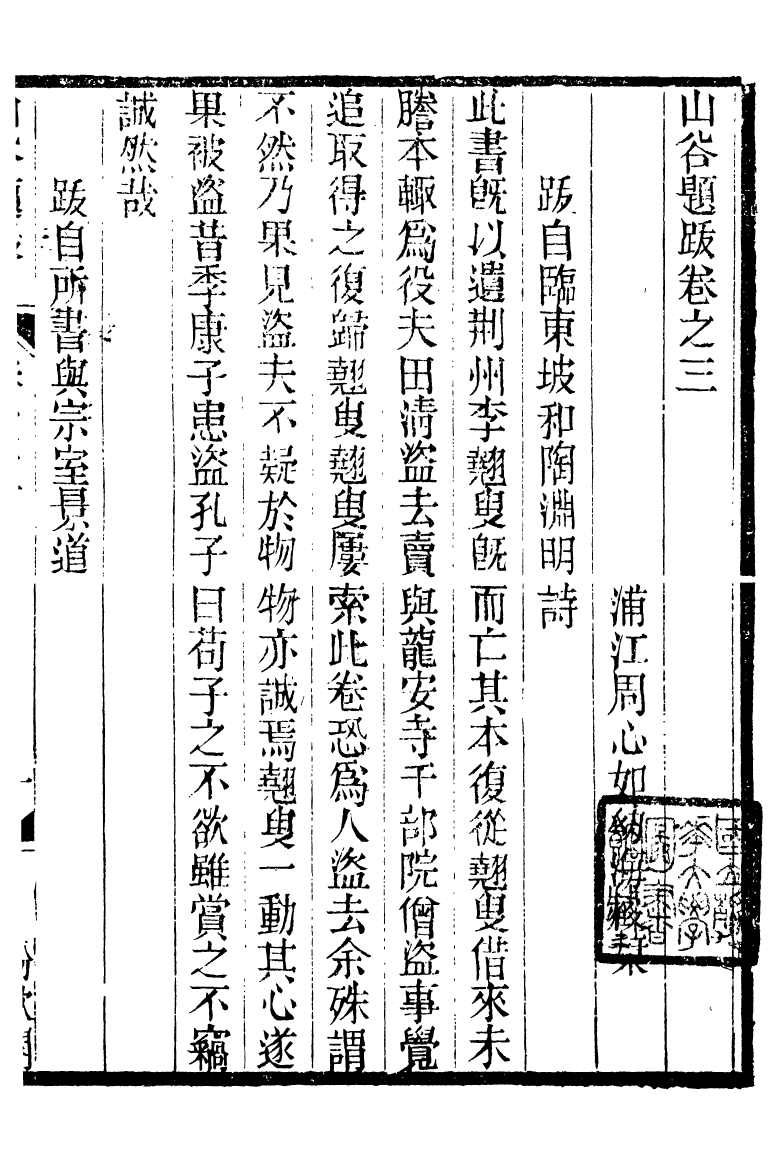 山谷題跋卷之三
浦江周心如
跋自臨東坡和陶淵明詩
此書旣以遺荆州李翹叟旣而亡其本復從翹叟借來未
謄本輙爲役夫田清盜去賣與龍安寺千部院僧盜事覺
追取得之復歸翹叟翹叟屢索此卷恐爲人盜去余殊謂
不然乃果見盜夫不疑於物物亦誠焉翹叟一動其心遂
果被盜昔季康子患盜孔子曰苟子之不欲雖賞之不竊
誠然哉
跋自所書與宗室景道